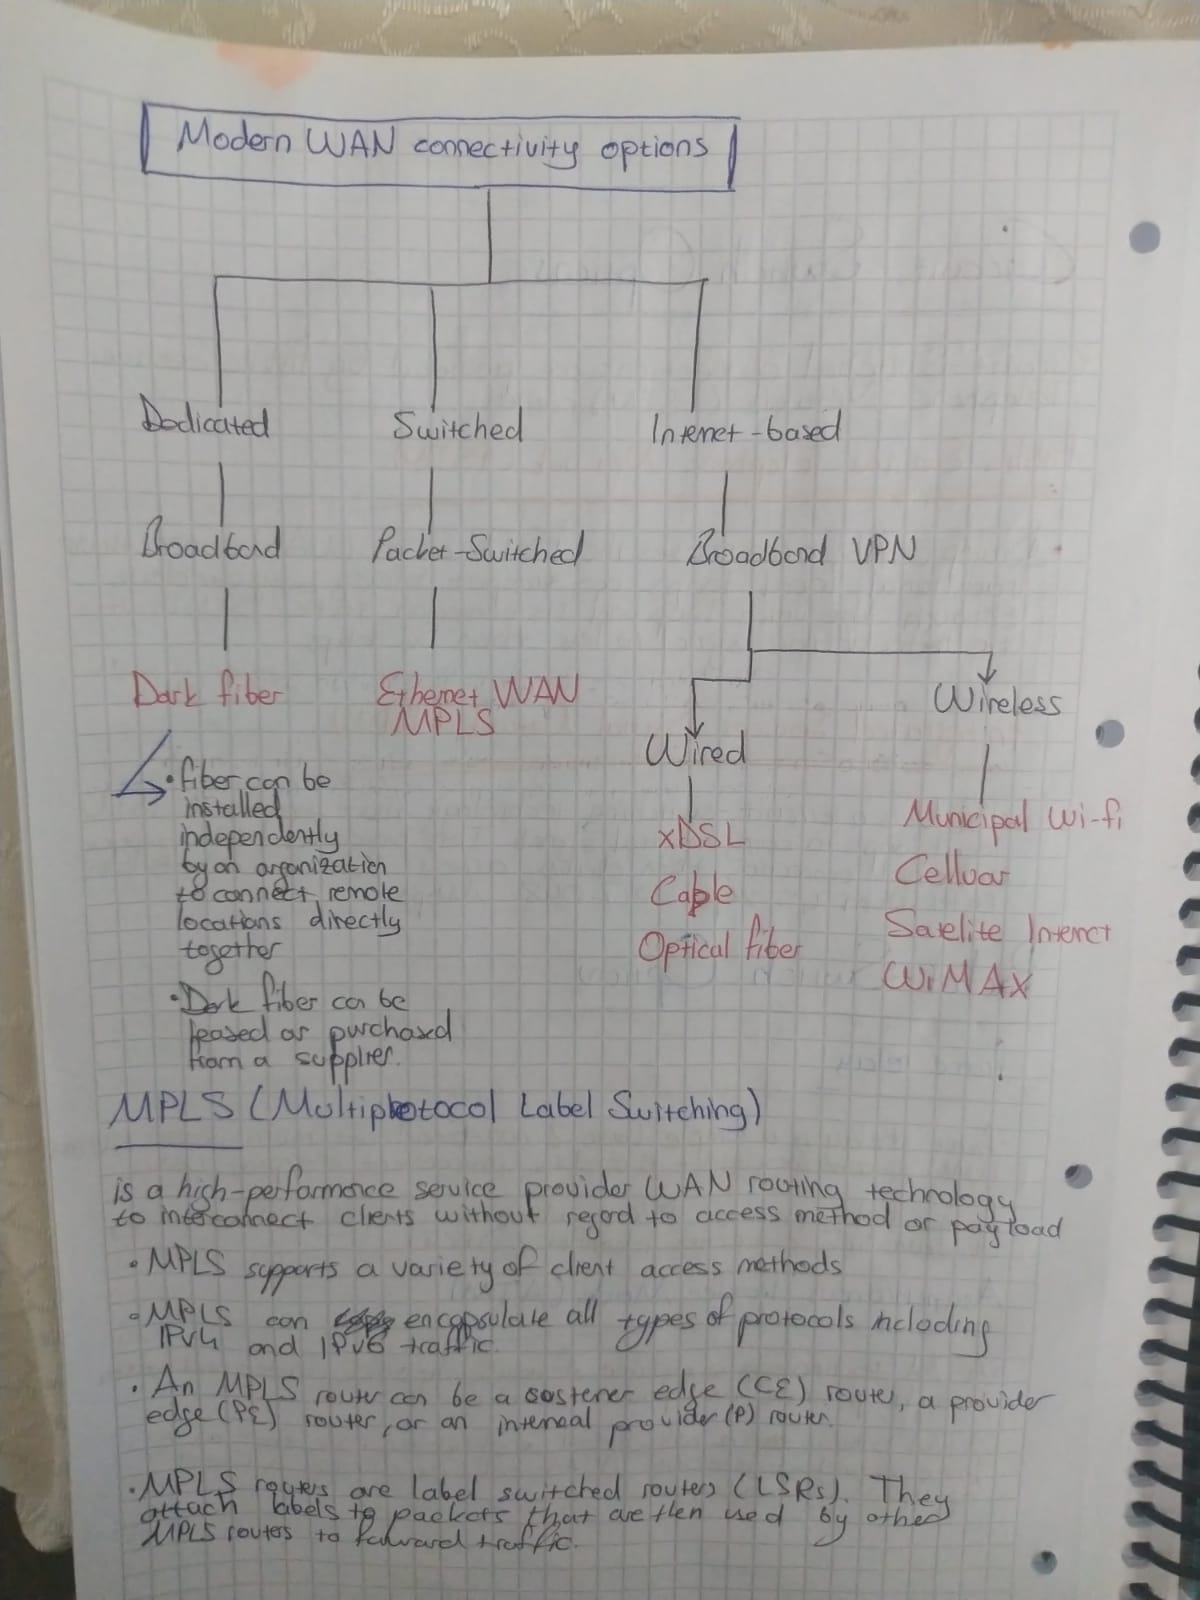 Modern WAN connectivity options
Dedicated Switched Internet-based
Broadband Packet-Switched Broadband VPN
Dark fiber Ethernet WAN
MPLS
Wireless
Wired
• fiber can be
installed
independently
by an organization
to connect remote
locations directly
together
• Dark fiber can be
leased or purchased
from a supplier.
xDSL
Cable
Optical fiber
Municipal Wi-fi
Celluar
Satelite Internet
WiMAX
MPLS (Multiprotocol Label Switching)
is a high-performance service provider WAN routing technology
to interconnect clients without regard to access method or payload
• MPLS supports a variety of client access methods
• MPLS can encapsulate all types of protocols including
IPv4 and IPv6 traffic.
• An MPLS router can be a costener edge (CE) router, a provider
edge (PE) router, or an internal provider (P) router.
• MPLS routers are label switched routers (LSRs). They
attach labels to packets that are then used by other
MPLS routers to forward traffic.